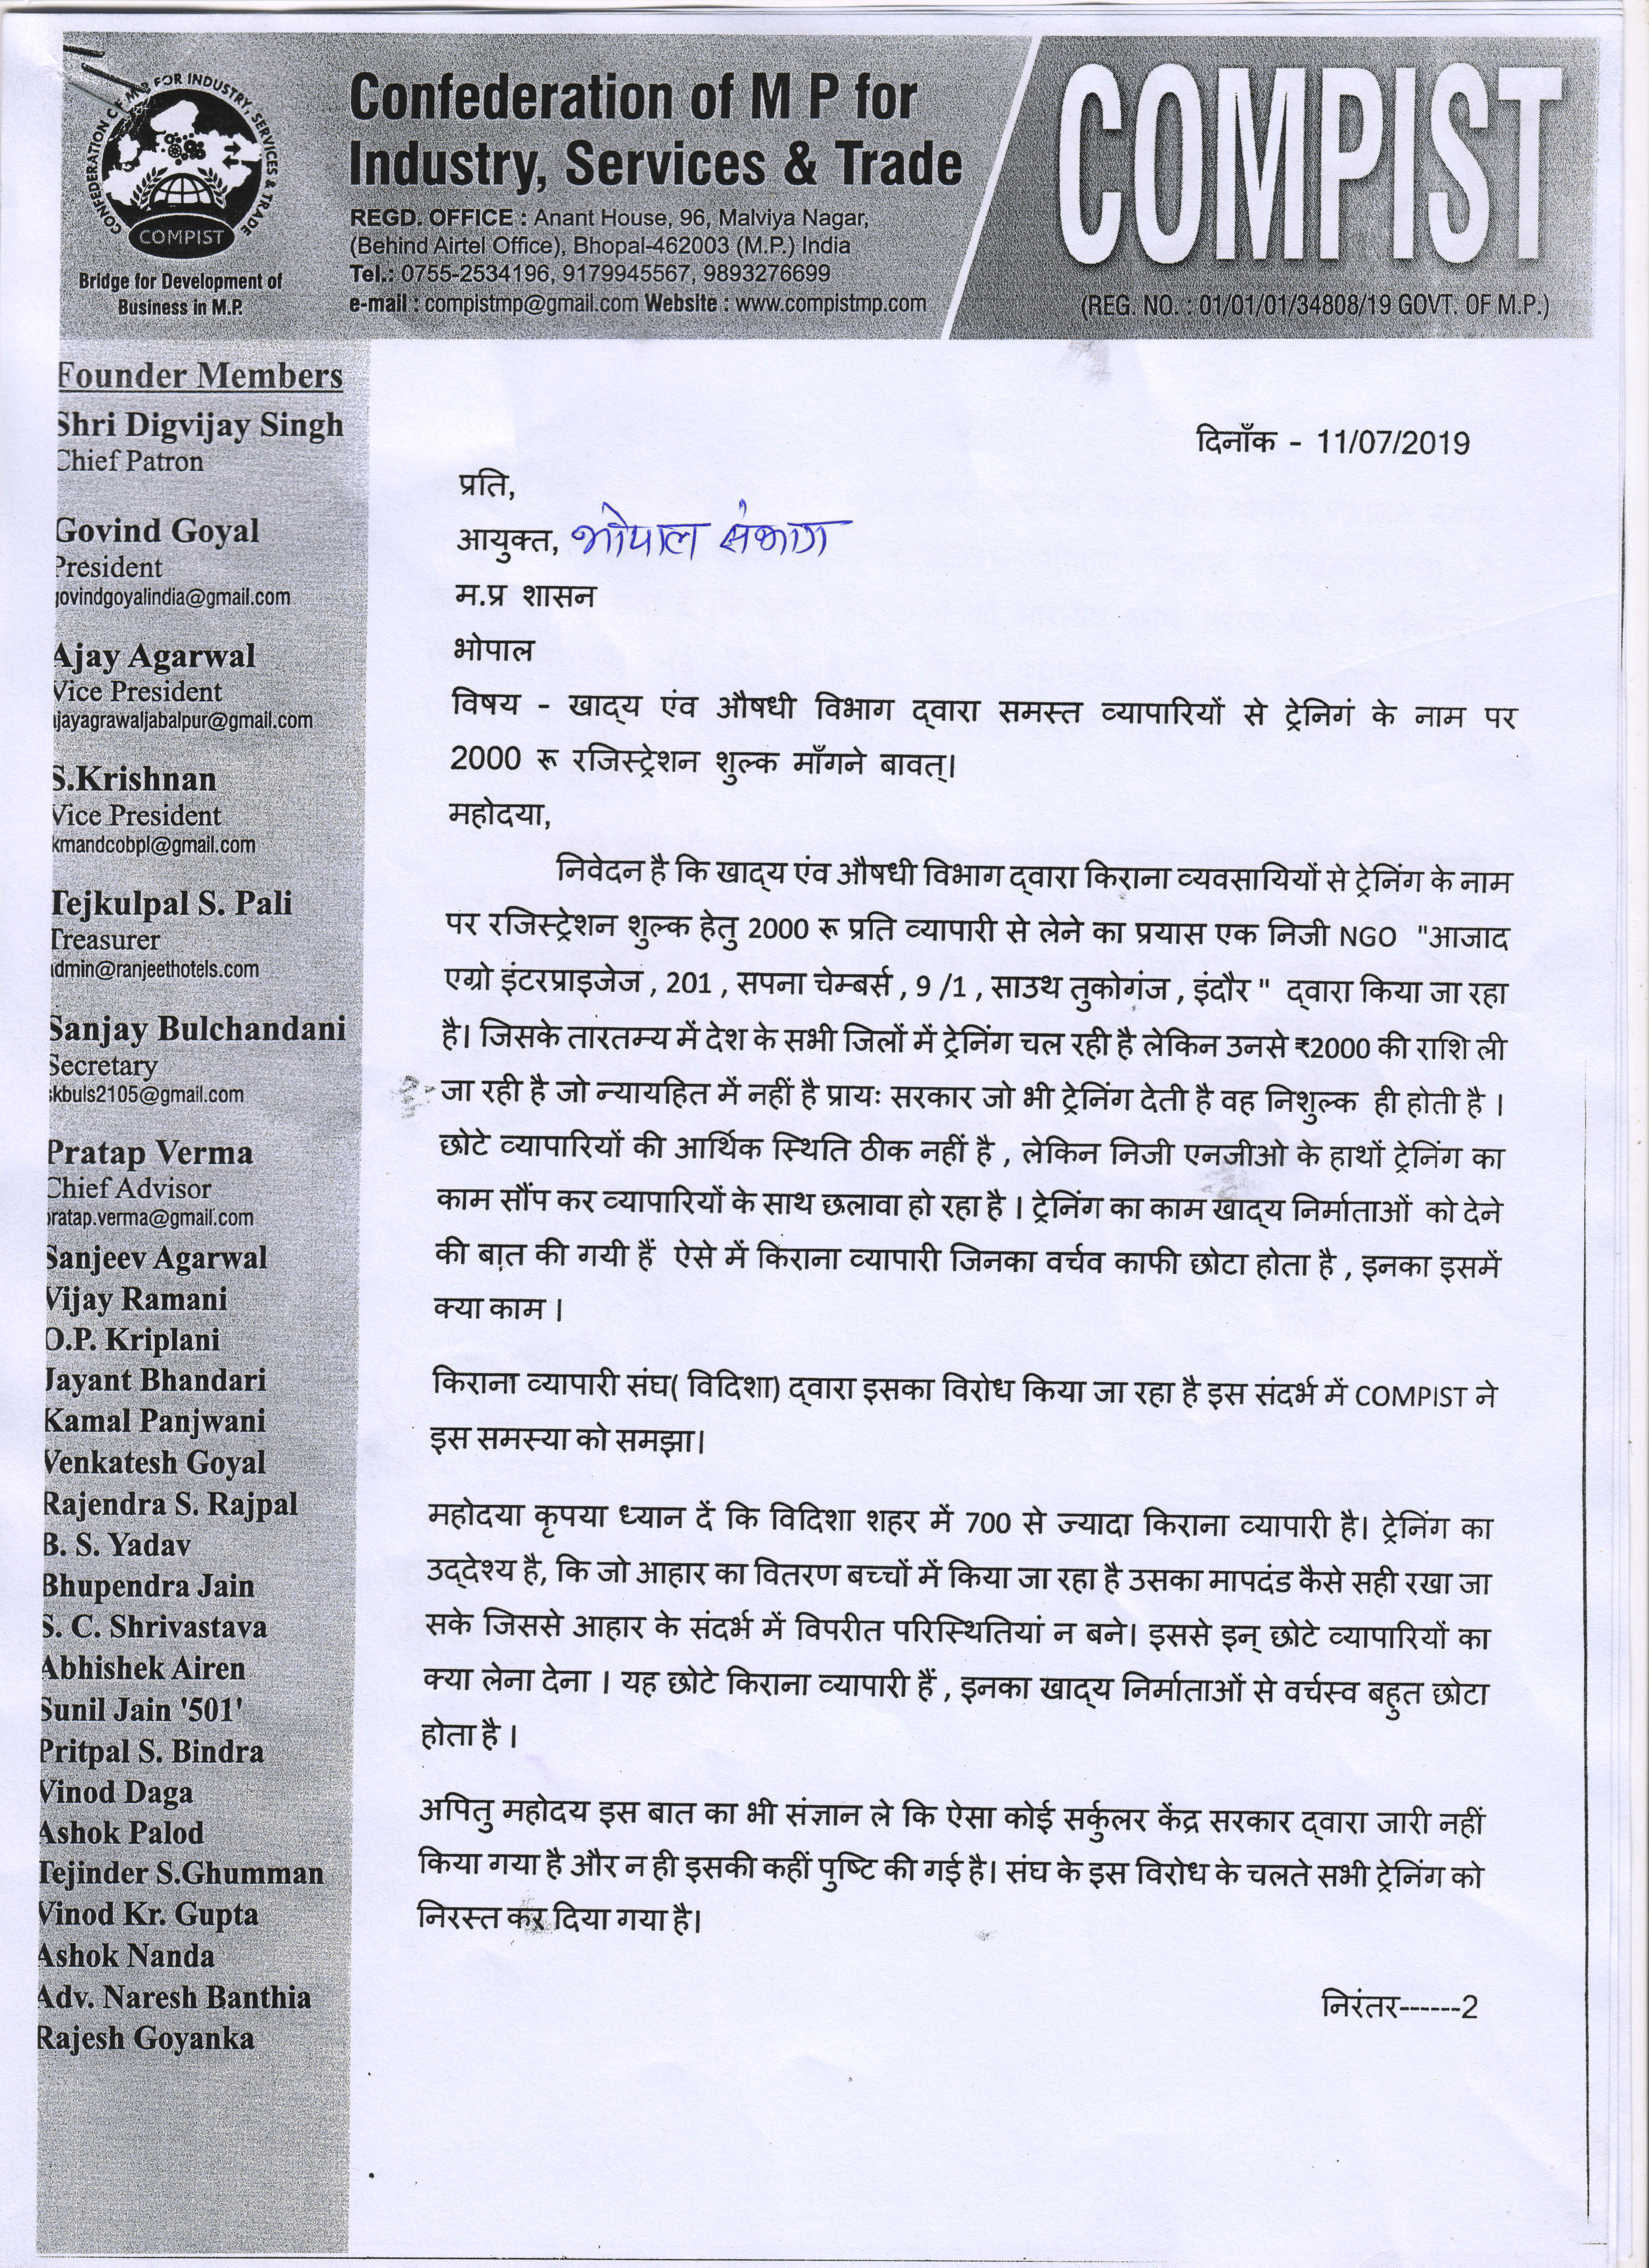 CONFEDERATION OF M P FOR INDUSTRY, SERVICES & TRADE
COMPIST
Bridge for Development of
Business in M.P.
Confederation of M P for
Industry, Services & Trade
REGD. OFFICE : Anant House, 96, Malviya Nagar,
(Behind Airtel Office), Bhopal-462003 (M.P.) India
Tel.: 0755-2534196, 9179945567, 9893276699
e-mail : compistmp@gmail.com Website : www.compistmp.com
COMPIST
(REG. NO. : 01/01/01/34808/19 GOVT. OF M.P.)
Founder Members
Shri Digvijay Singh
Chief Patron
Govind Goyal
President
govindgoyalindia@gmail.com
Ajay Agarwal
Vice President
ajayagrawaljabalpur@gmail.com
S.Krishnan
Vice President
kmandcobpl@gmail.com
Tejkulpal S. Pali
Treasurer
admin@ranjeethotels.com
Sanjay Bulchandani
Secretary
skbuls2105@gmail.com
Pratap Verma
Chief Advisor
pratap.verma@gmail.com
Sanjeev Agarwal
Vijay Ramani
O.P. Kriplani
Jayant Bhandari
Kamal Panjwani
Venkatesh Goyal
Rajendra S. Rajpal
B. S. Yadav
Bhupendra Jain
S. C. Shrivastava
Abhishek Airen
Sunil Jain '501'
Pritpal S. Bindra
Vinod Daga
Ashok Palod
Tejinder S.Ghumman
Vinod Kr. Gupta
Ashok Nanda
Adv. Naresh Banthia
Rajesh Goyanka
दिनाँक - 11/07/2019
प्रति,
आयुक्त, भोपाल संभाग
म.प्र शासन
भोपाल
विषय - खाद्य एंव औषधी विभाग द्वारा समस्त व्यापारियों से ट्रेनिगं के नाम पर
2000 रू रजिस्ट्रेशन शुल्क माँगने बावत्।
महोदया,
निवेदन है कि खाद्य एंव औषधी विभाग द्वारा किराना व्यवसायियों से ट्रेनिंग के नाम
पर रजिस्ट्रेशन शुल्क हेतु 2000 रू प्रति व्यापारी से लेने का प्रयास एक निजी NGO "आजाद
एग्रो इंटरप्राइजेज , 201 , सपना चेम्बर्स , 9 /1 , साउथ तुकोगंज , इंदौर " द्वारा किया जा रहा
है। जिसके तारतम्य में देश के सभी जिलों में ट्रेनिंग चल रही है लेकिन उनसे ₹2000 की राशि ली
जा रही है जो न्यायहित में नहीं है प्रायः सरकार जो भी ट्रेनिंग देती है वह निशुल्क ही होती है ।
छोटे व्यापारियों की आर्थिक स्थिति ठीक नहीं है , लेकिन निजी एनजीओ के हाथों ट्रेनिंग का
काम सौंप कर व्यापारियों के साथ छलावा हो रहा है । ट्रेनिंग का काम खाद्य निर्माताओं को देने
की बात की गयी हैं ऐसे में किराना व्यापारी जिनका वर्चव काफी छोटा होता है , इनका इसमें
क्या काम ।
किराना व्यापारी संघ( विदिशा) द्वारा इसका विरोध किया जा रहा है इस संदर्भ में COMPIST ने
इस समस्या को समझा।
महोदया कृपया ध्यान दें कि विदिशा शहर में 700 से ज्यादा किराना व्यापारी है। ट्रेनिंग का
उद्देश्य है, कि जो आहार का वितरण बच्चों में किया जा रहा है उसका मापदंड कैसे सही रखा जा
सके जिससे आहार के संदर्भ में विपरीत परिस्थितियां न बने। इससे इन् छोटे व्यापारियों का
क्या लेना देना । यह छोटे किराना व्यापारी हैं , इनका खाद्य निर्माताओं से वर्चस्व बहुत छोटा
होता है ।
अपितु महोदय इस बात का भी संज्ञान ले कि ऐसा कोई सर्कुलर केंद्र सरकार द्वारा जारी नहीं
किया गया है और न ही इसकी कहीं पुष्टि की गई है। संघ के इस विरोध के चलते सभी ट्रेनिंग को
निरस्त कर दिया गया है।
निरंतर------2